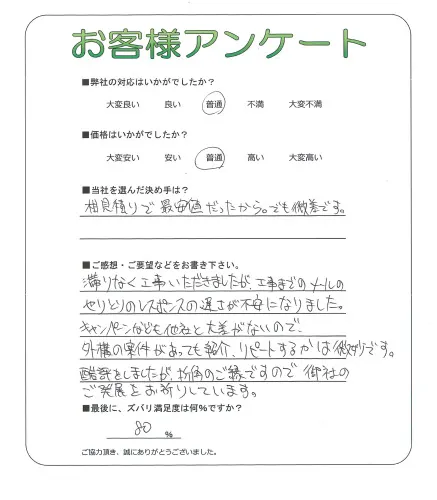 お客様アンケート
■弊社の対応はいかがでしたか?
大変良い 良い 普通 不満 大変不満
■価格はいかがでしたか?
大変安い 安い 普通 高い 大変高い
■当社を選んだ決め手は?
相見積りで最安値だったから。でも微差です。
■ご感想・ご要望などをお書き下さい。
滞りなく工事いただきましたが、工事までのメールの
やりとりのレスポンスの遅さが不安になりました。
キャンペーンなども他社と大差がないので、
外構の案件があっても紹介、リピートするかは微妙です。
酷評をしましたが、折角のご縁ですので御社の
ご発展をお祈りしています。
■最後に、ズバリ満足度は何%ですか?
80 %
ご協力頂き、誠にありがとうございました。